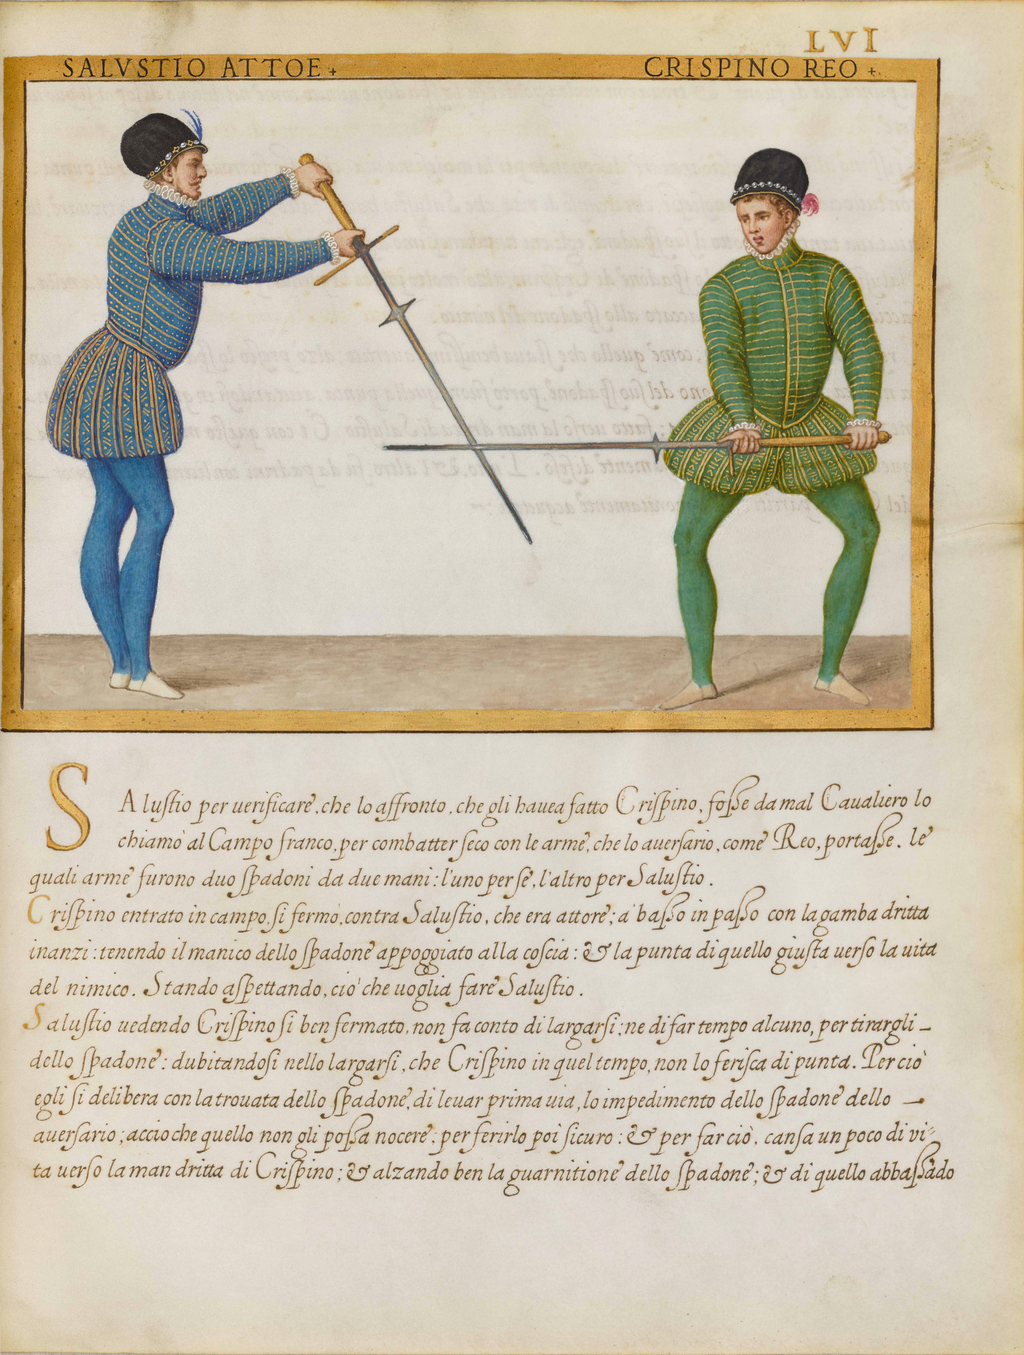 LVI
SALVSTIO ATTOE+
CRISPINO REO+
SAlustio per uerificare, che lo affronto, che gli hauea fatto Crispino, fosse da mal Caualiero lo
chiamò al Campo franco, per combatter seco con le arme, che lo auersario, come Reo, portasse. le
quali arme furono duo spadoni da due mani: l'uno per se, l'altro per Salustio.
Crispino entrato in campo, si fermò, contra Salustio, che era attore; a basso in passo con la gamba dritta
inanzi: tenendo il manico dello spadone appoggiato alla coscia: & la punta di quello giusta uerso la uita
del nimico. Stando aspettando, ciò che uoglia fare Salustio.
Salustio uedendo Crispino si ben fermato, non fa conto di largarsi; ne di far tempo alcuno, per tirargli _
dello spadone: dubitandosi nello largarsi, che Crispino in quel tempo, non lo ferisca di punta. Perciò
egli si delibera con la trouata dello spadone, di leuar prima uia, lo impedimento dello spadone dello —
auersario; accioche quello non gli possa nocere: per ferirlo poi sicuro: & per far ciò, cansa un poco di vi-
ta uerso la man dritta di Crispino; & alzando ben la guarnitione dello spadone; & di quello abbassādo